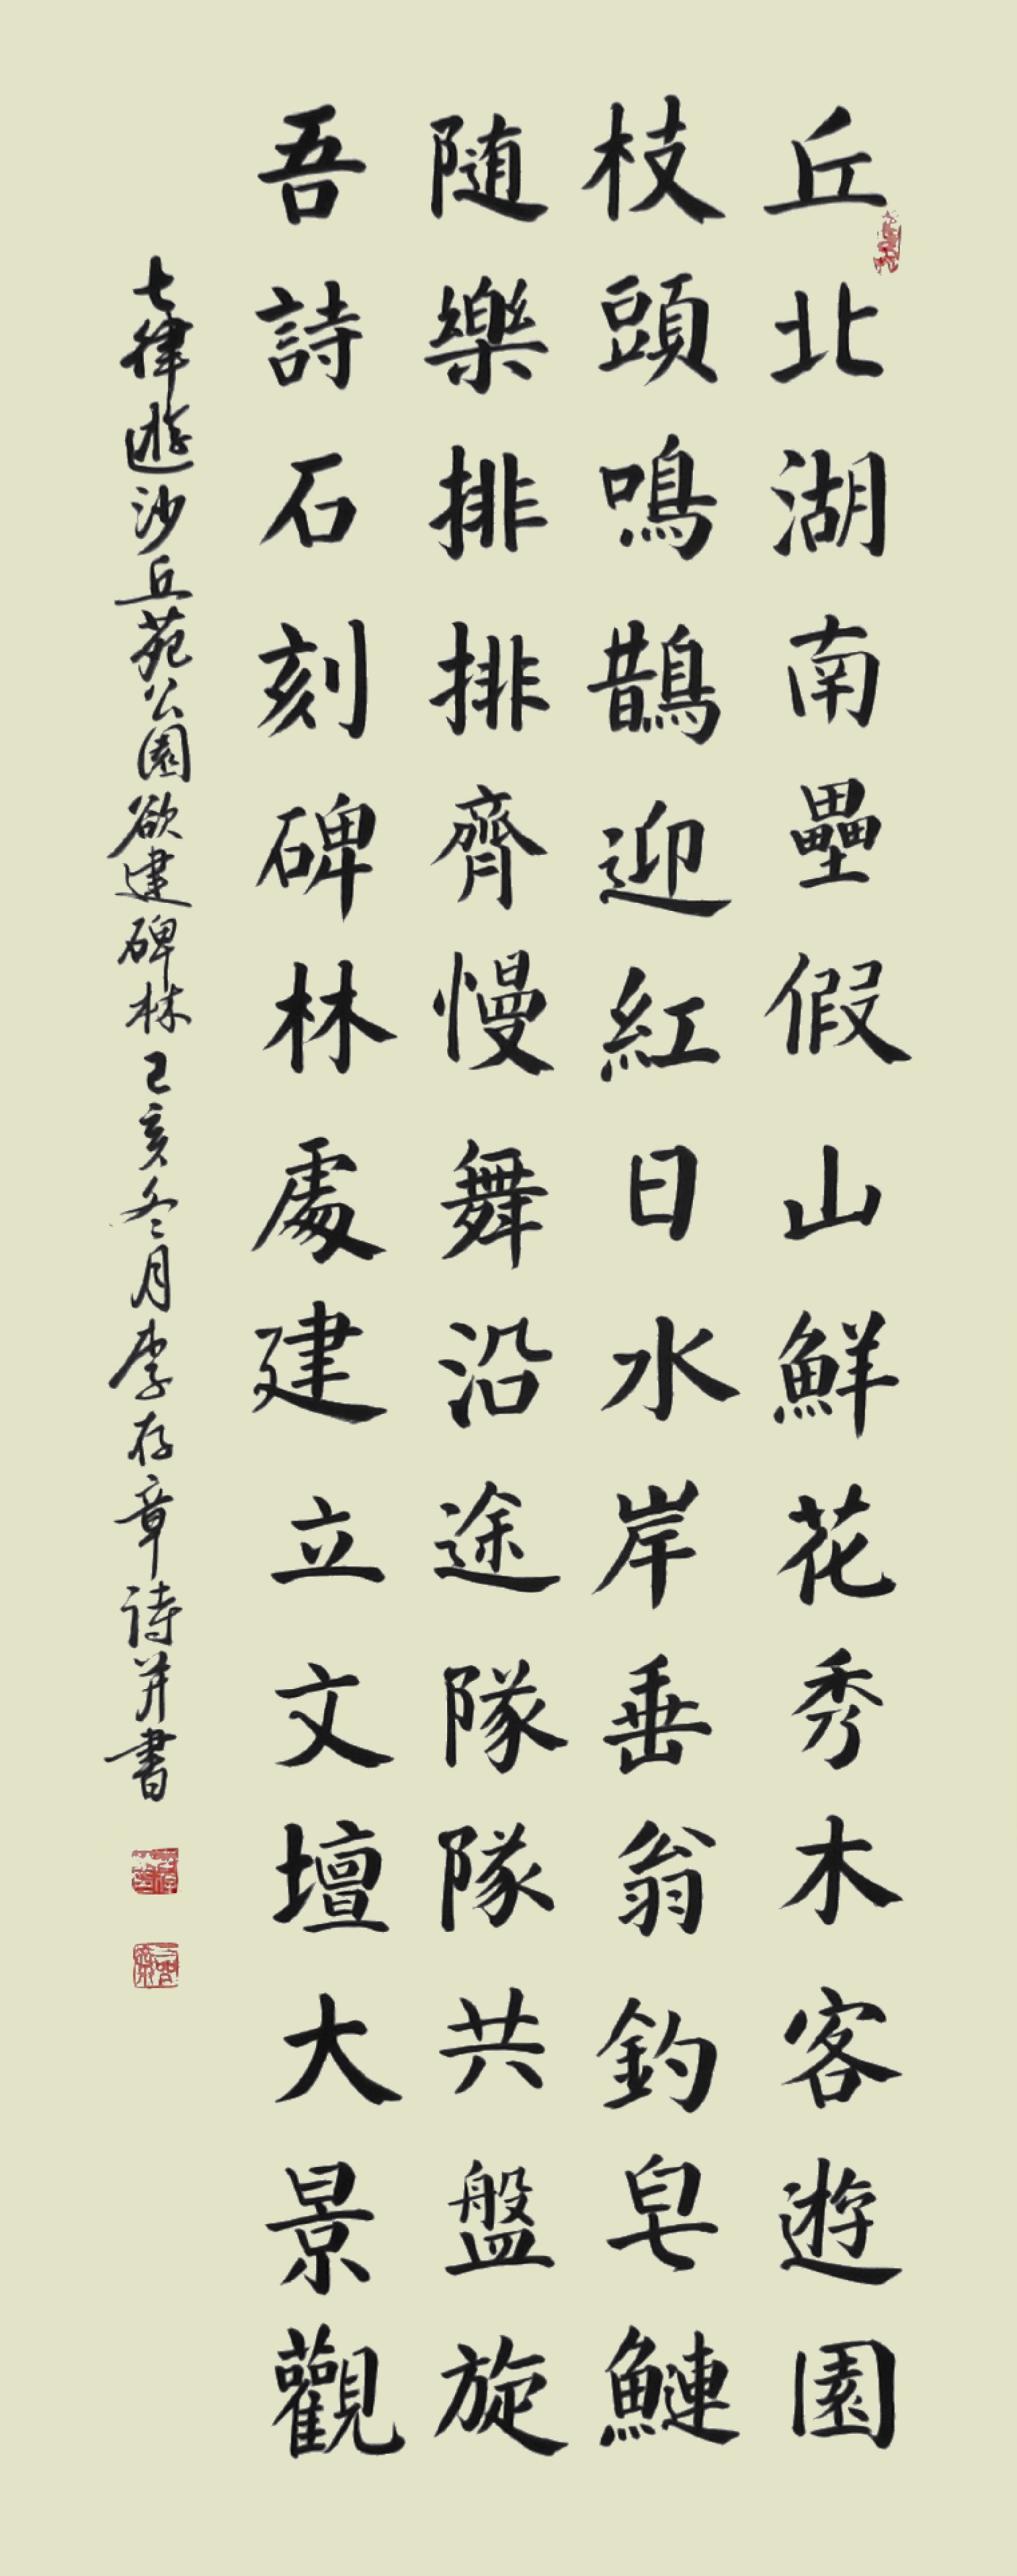 丘北湖南壘假山鮮花秀木客遊園
枝頭鳴鵲迎紅日水岸垂翁釣皂鰱
随樂排排齊慢舞沿途隊隊共盤旋
吾詩石刻碑林處建立文壇大景觀
七律遊沙丘苑公園欲建碑林己亥冬月李存章诗并書